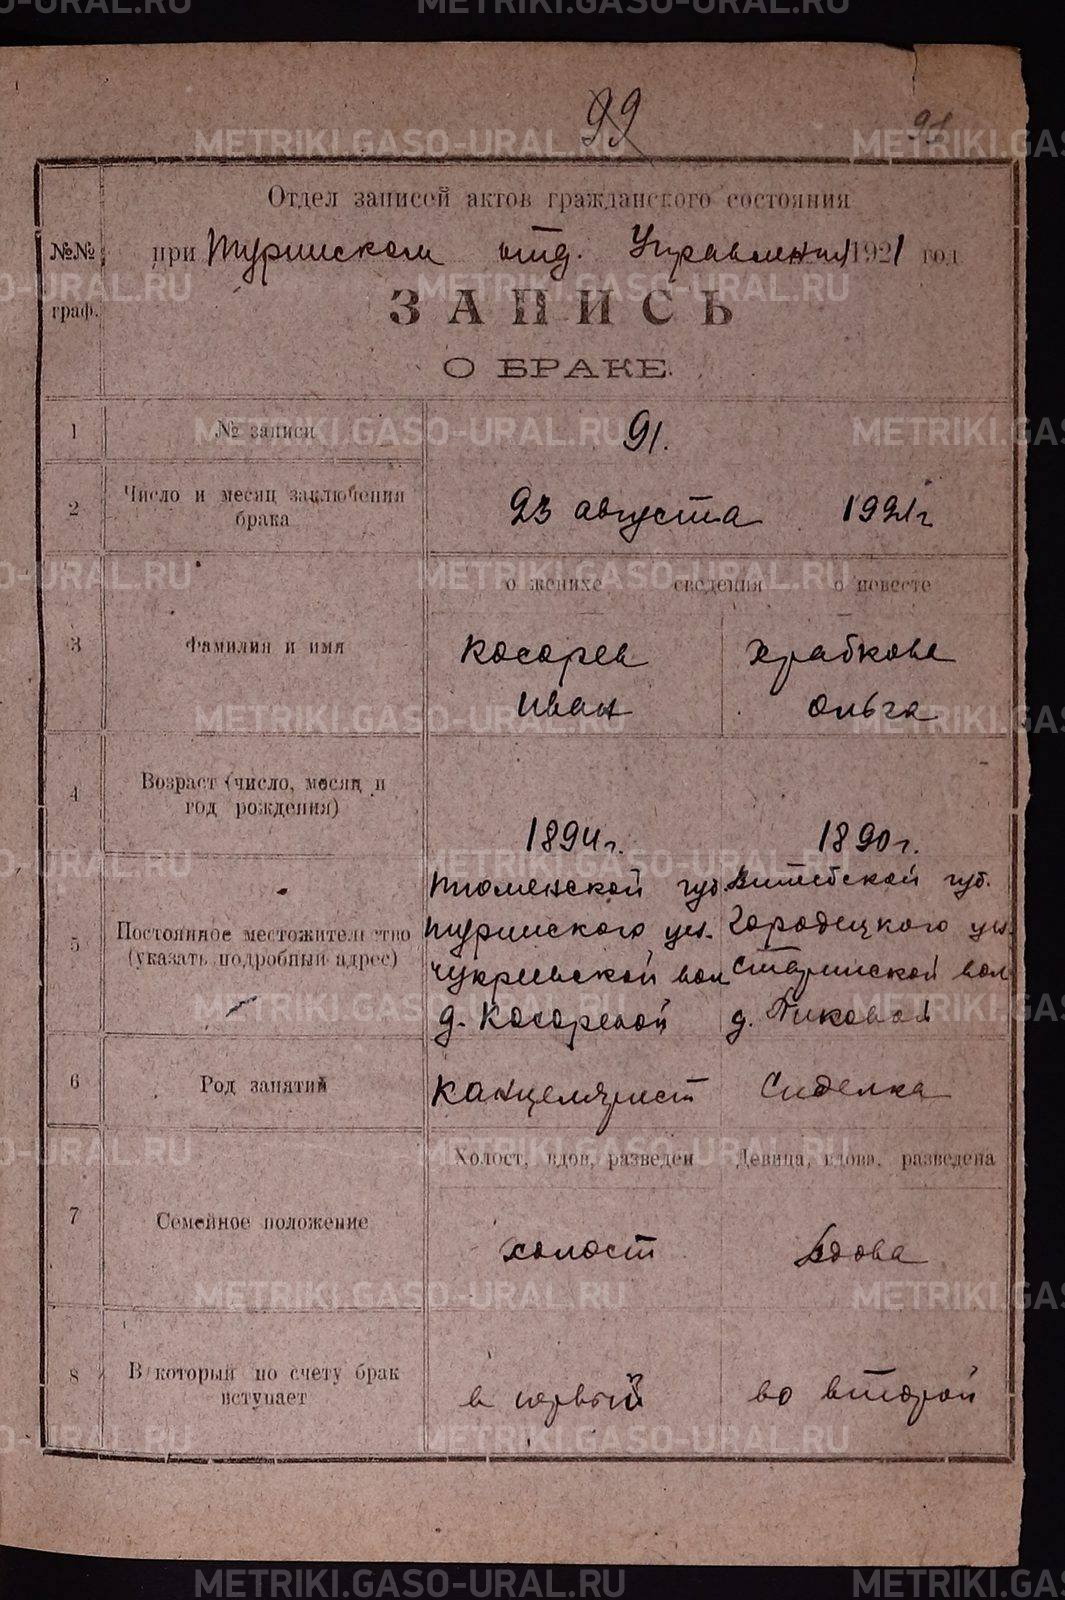 99
91
Отдел записей актов гражданского состояния
№№ граф.
при Туринском отд. Управления 1921 год
ЗАПИСЬ
О БРАКЕ.
1 № записи 91.
2 Число и месяц заключения брака 23 августа 1921 г
о женихе сведения о невесте
3 Фамилия и имя
Косарев Храбкова
Иван Ольга
4 Возраст (число, месяц и год рождения)
1894 г. 1890 г.
5 Постоянное местожительство (указать подробный адрес)
Тюменской губ. Витебской губ.
Туринского уез. Городецкого уез.
Чукреевской вол Старинской вол
д. Косаревой д.
6 Род занятий Канцелярист Сиделка
Холост, вдов, разведен Девица, вдова, разведена
7 Семейное положение холост вдова
8 В который по счету брак вступает в первый во второй
METRIKI.GASO-URAL.RU